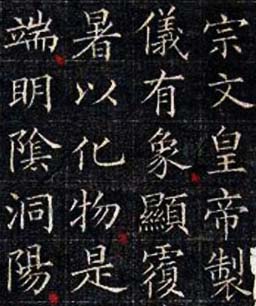 宗文皇帝製
儀有象顯覆
暑以化物是
端明陰洞陽